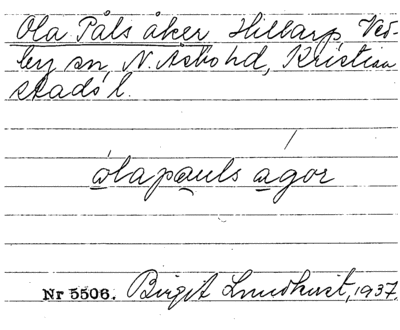 Ola Påls åker Hillarp, Ved-
by sn, N. Åsbo hd, Kristian
stads l.
ólapauls agor
Nr 5506. Birgit Lundkvist, 1937.